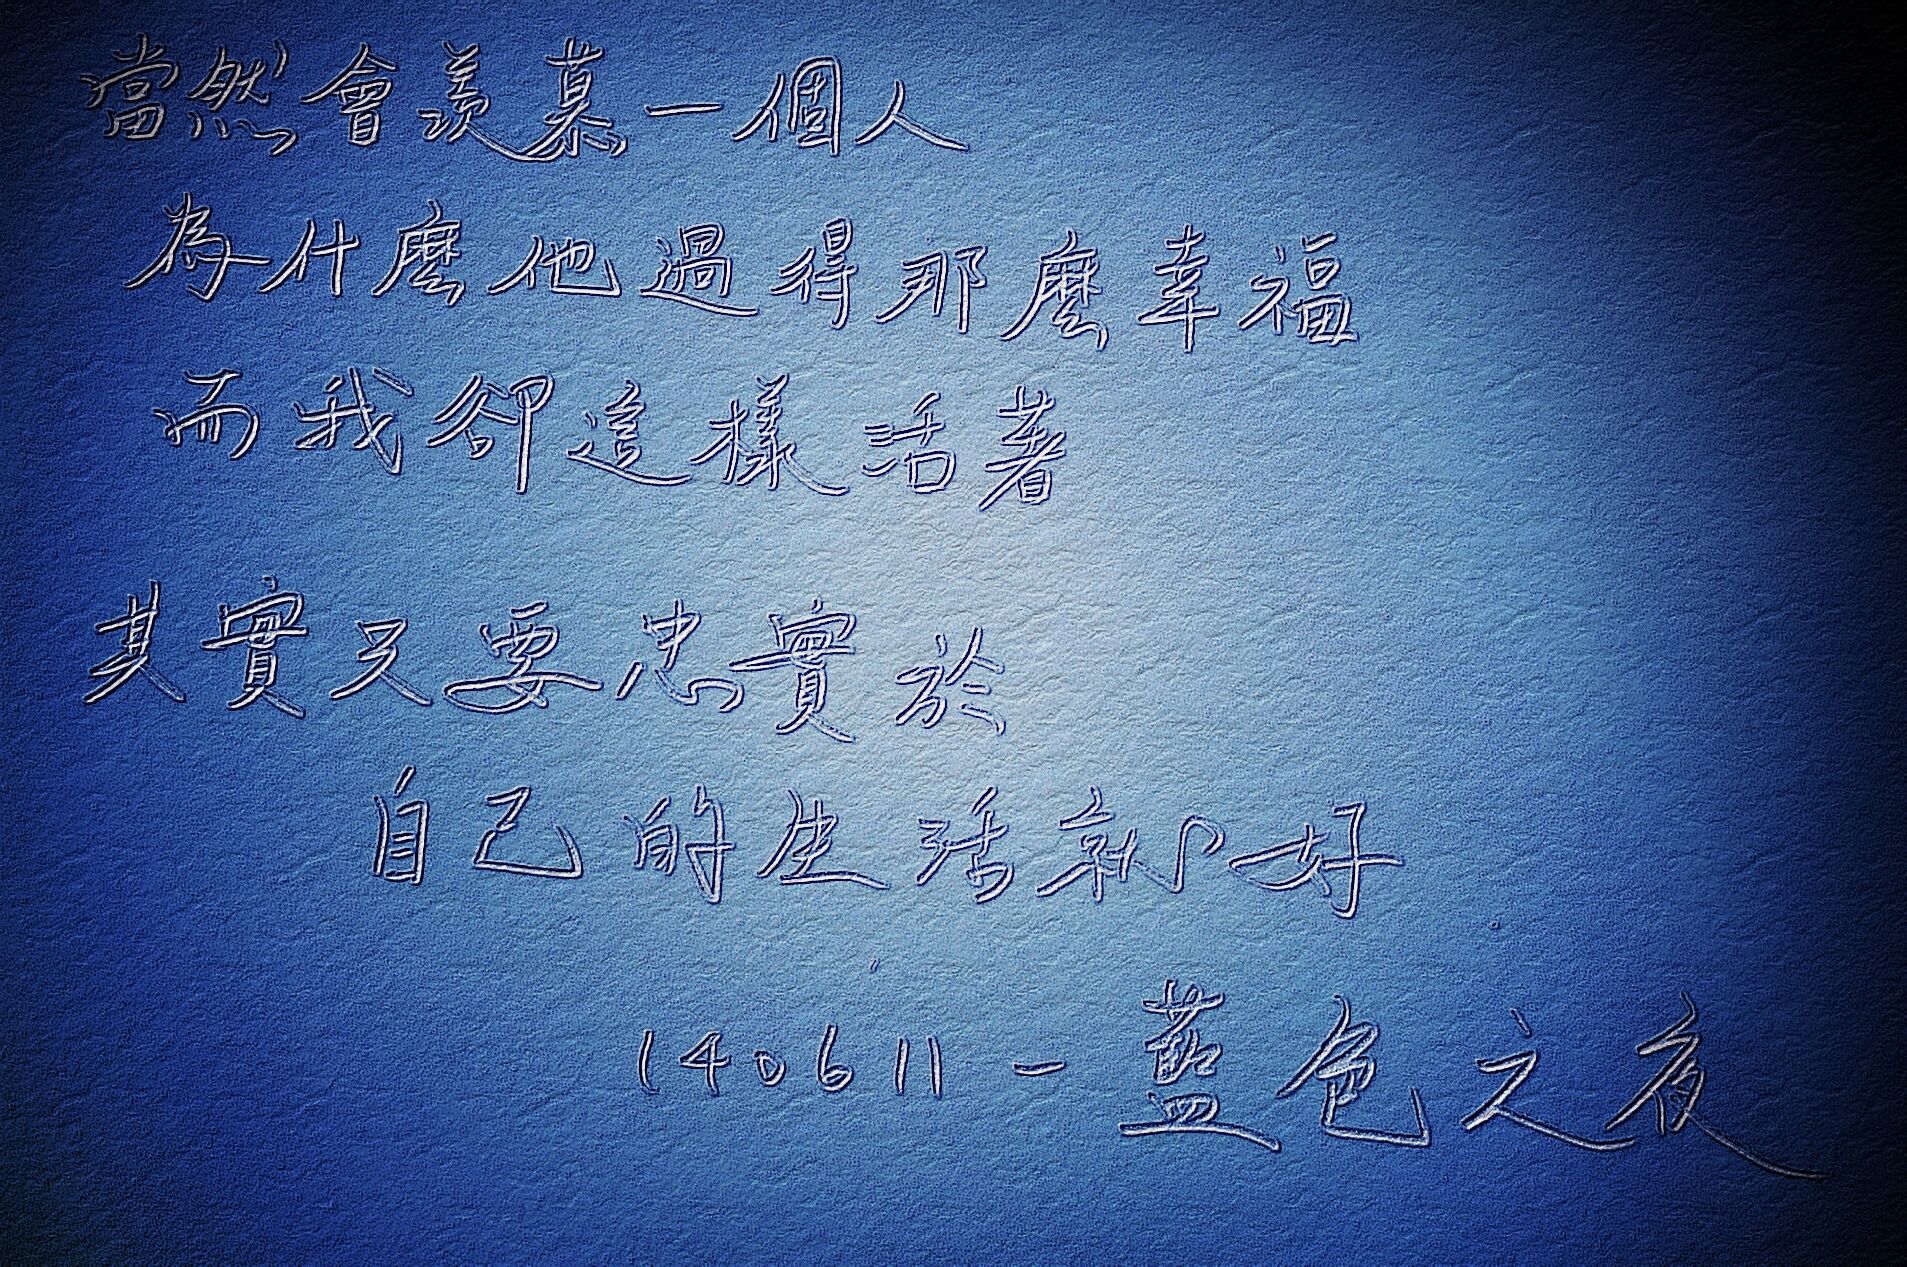 當然會羨慕一個人
為什麼他過得那麼幸福
而我卻這樣活著
其實只要忠實於
自己的生活就好
140611 - 藍色之夜